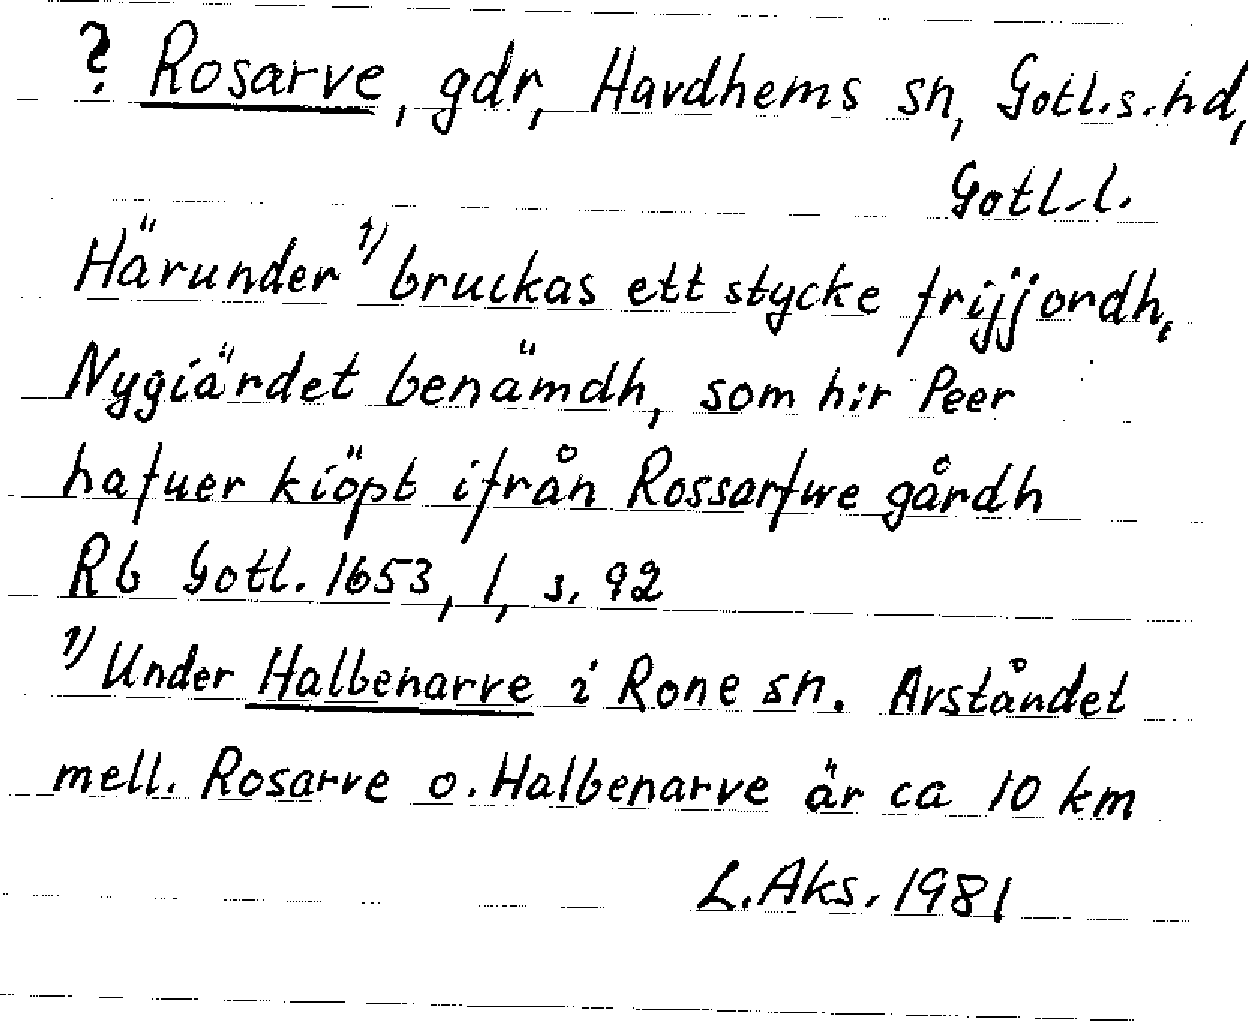 ? Rosarve, gdr, Havdhems sn, Gotl.s.hd,
Gotl.l.
Härunder 1) bruckas ett stycke frijjordh,
Nygiärdet benämdh, som h:r Peer
hafuer kiöpt ifrån Rossarfwe gårdh
Rb Gotl. 1653, 1, s. 92
1) Under Halbenarve i Rone sn. Avståndet
mell. Rosarve o. Halbenarve är ca 10 km
L. Aks. 1981